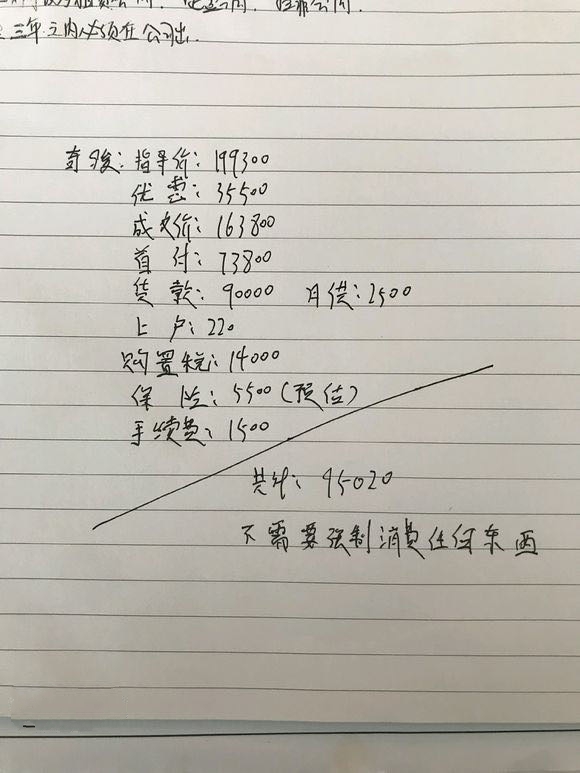 三年之内必须在公司出
奇骏：指导价：199300
优惠：35500
成交价：163800
首付：73800
贷款：90000 月供：2500
上户：220
购置税：14000
保险：5500（预估）
手续费：1500
共计：95020
不需要强制消费任何东西